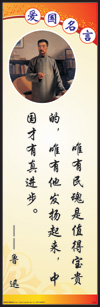 爱国名言
唯有民魂是值得宝贵
的，唯有他发扬起来，中
国才有真进步。
——鲁迅